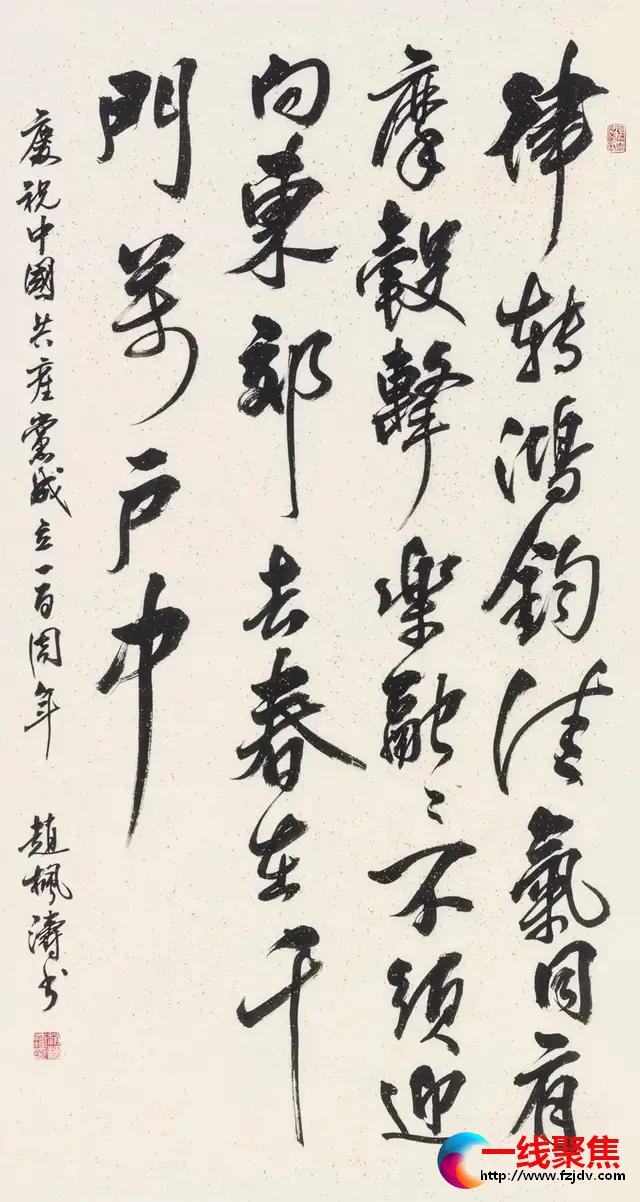 律轉鴻鈞佳氣同肩
摩轂擊樂融〻不須迎
向東郊去春在千
門萬户中
慶祝中國共産黨成立一百周年 趙楓濤书
一线聚焦
http://www.fzjdv.com